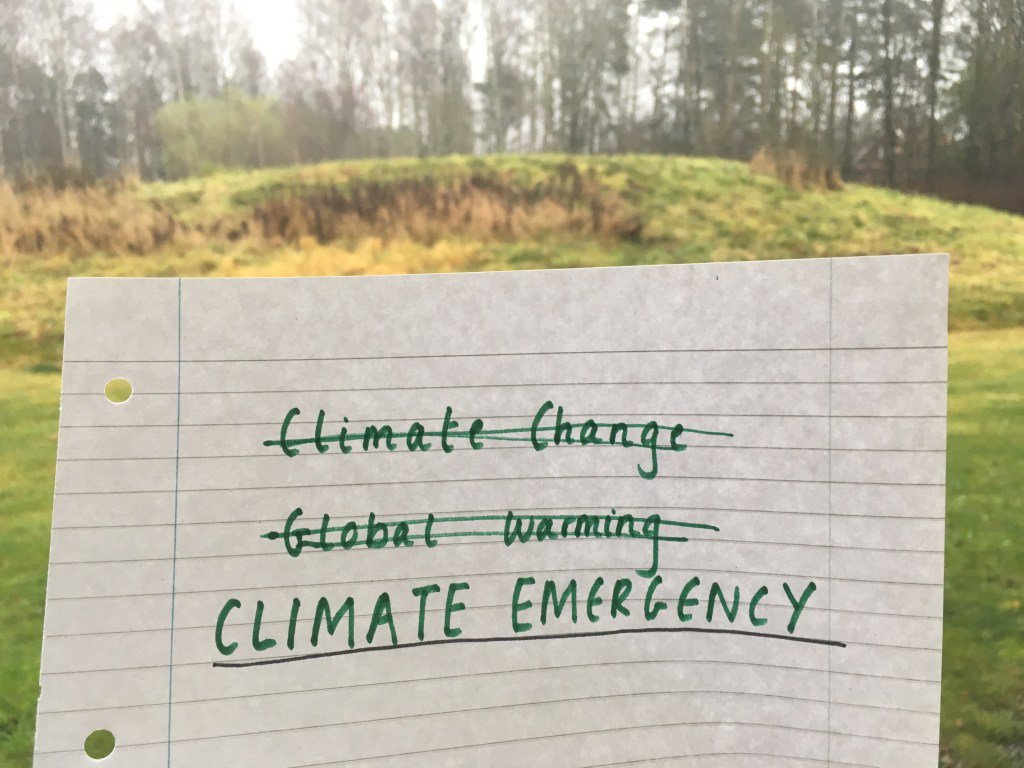 Climate Change
Global warming
CLIMATE EMERGENCY